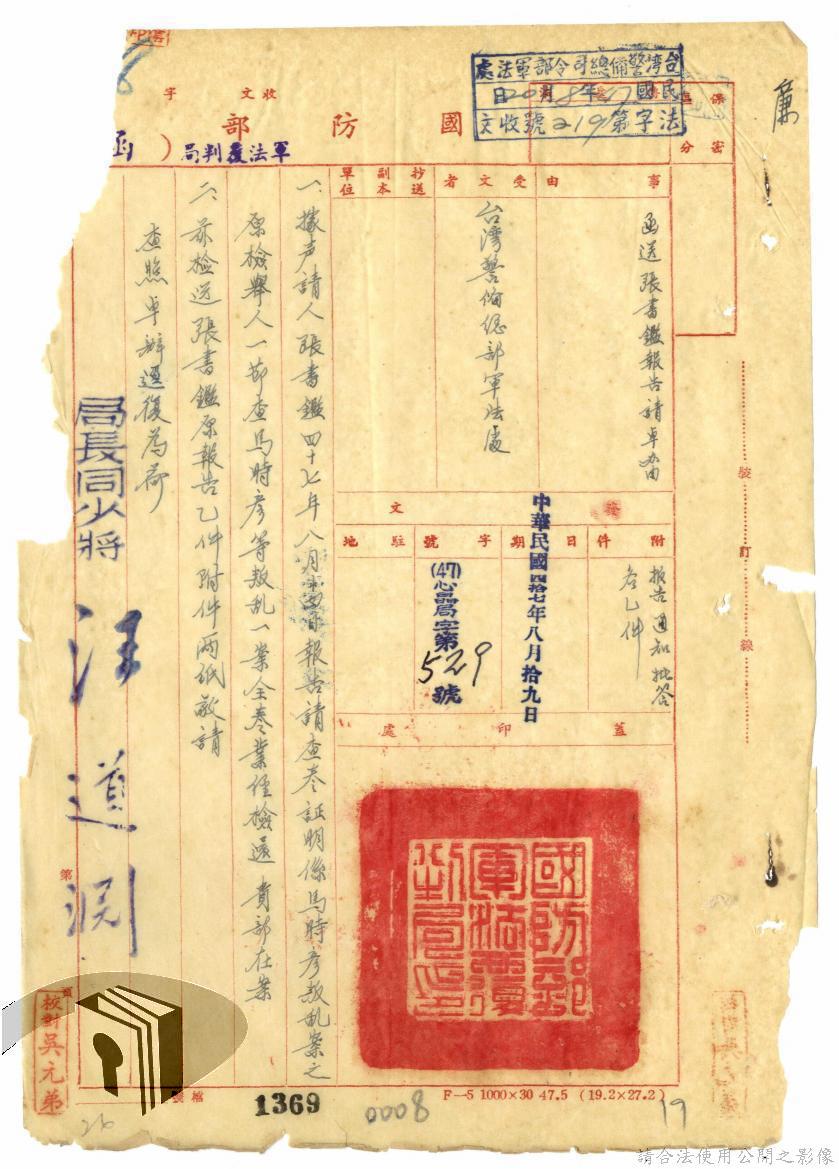 台湾警備總司令部軍法處
民國47年8月20日
法字第219號收文
收文 字
國防部
軍法覆判局
（函）
保密
區分
廉
事由
函送張書鑑報告請卓辦由
受文者
台湾警备總部軍法處
抄送
副本
單位
發文
附件
報告通知批答
各乙件
日期
中華民國四拾七年八月拾九日
字號
(47)心品局字第
529
號
駐地
蓋印處
國防部
軍法覆
判局印
一、據声請人張書鑑四十七年八月十四日報告請查卷証明係馬時彥叛乱案之
原檢舉人一節查馬時彥等叛乱一案全卷業經檢還貴部在案
二、茲檢送張書鑑原報告乙件附件兩紙敬請
查照卓辦逕復為荷
局長同少將
汪道淵
裝訂線
第
頁
校對吳元弟
檔號
1369
0008
F—5 1000×30 47.5 (19.2×27.2)
19
26
請合法使用公開之影像